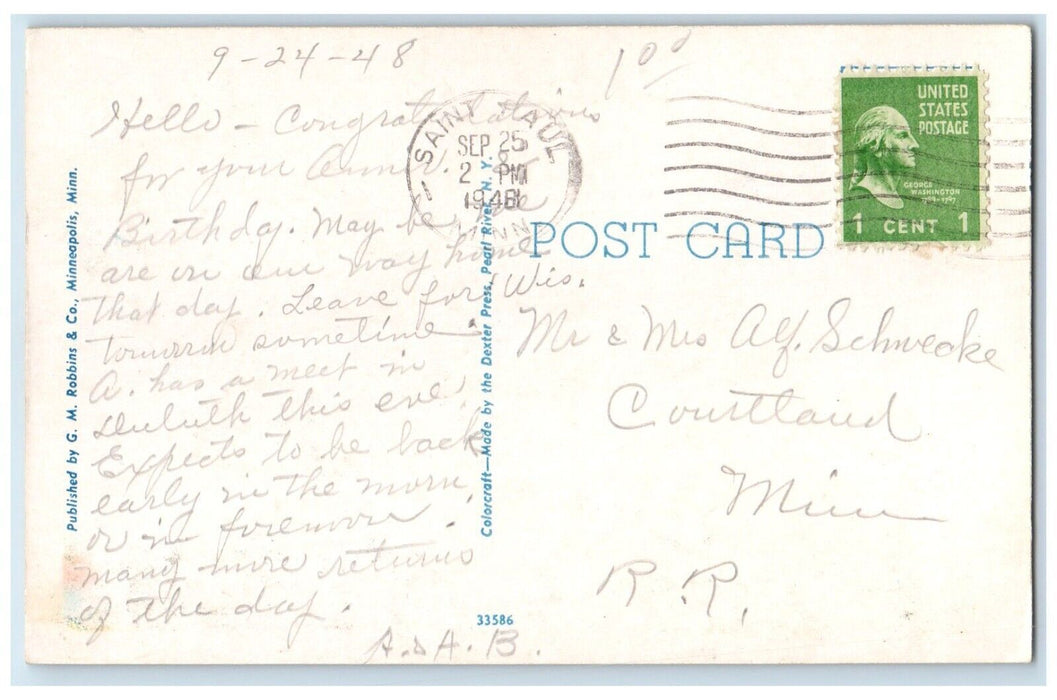 9-24-48
Hello - Congratulations
for your Anniv. &
Birthday. May be we
are on our way home
that day. Leave for Wis.
tomorrow sometime.
A. has a meet in
Duluth this eve.
Expects to be back
early in the morn.
or in forenoon.
Many more returns
of the day.
A. & A. B.
Published by G. M. Robbins & Co., Minneapolis, Minn.
Colorcraft—Made by the Dexter Press, Pearl River, N. Y.
33586
1 00
SAINT PAUL
SEP 25
2 PM
1948
MINN
UNITED
STATES
POSTAGE
GEORGE
WASHINGTON
1789-1797
1 CENT 1
POST CARD
Mr & Mrs Alf. Schwecke
Courtland
Minn
R. R.